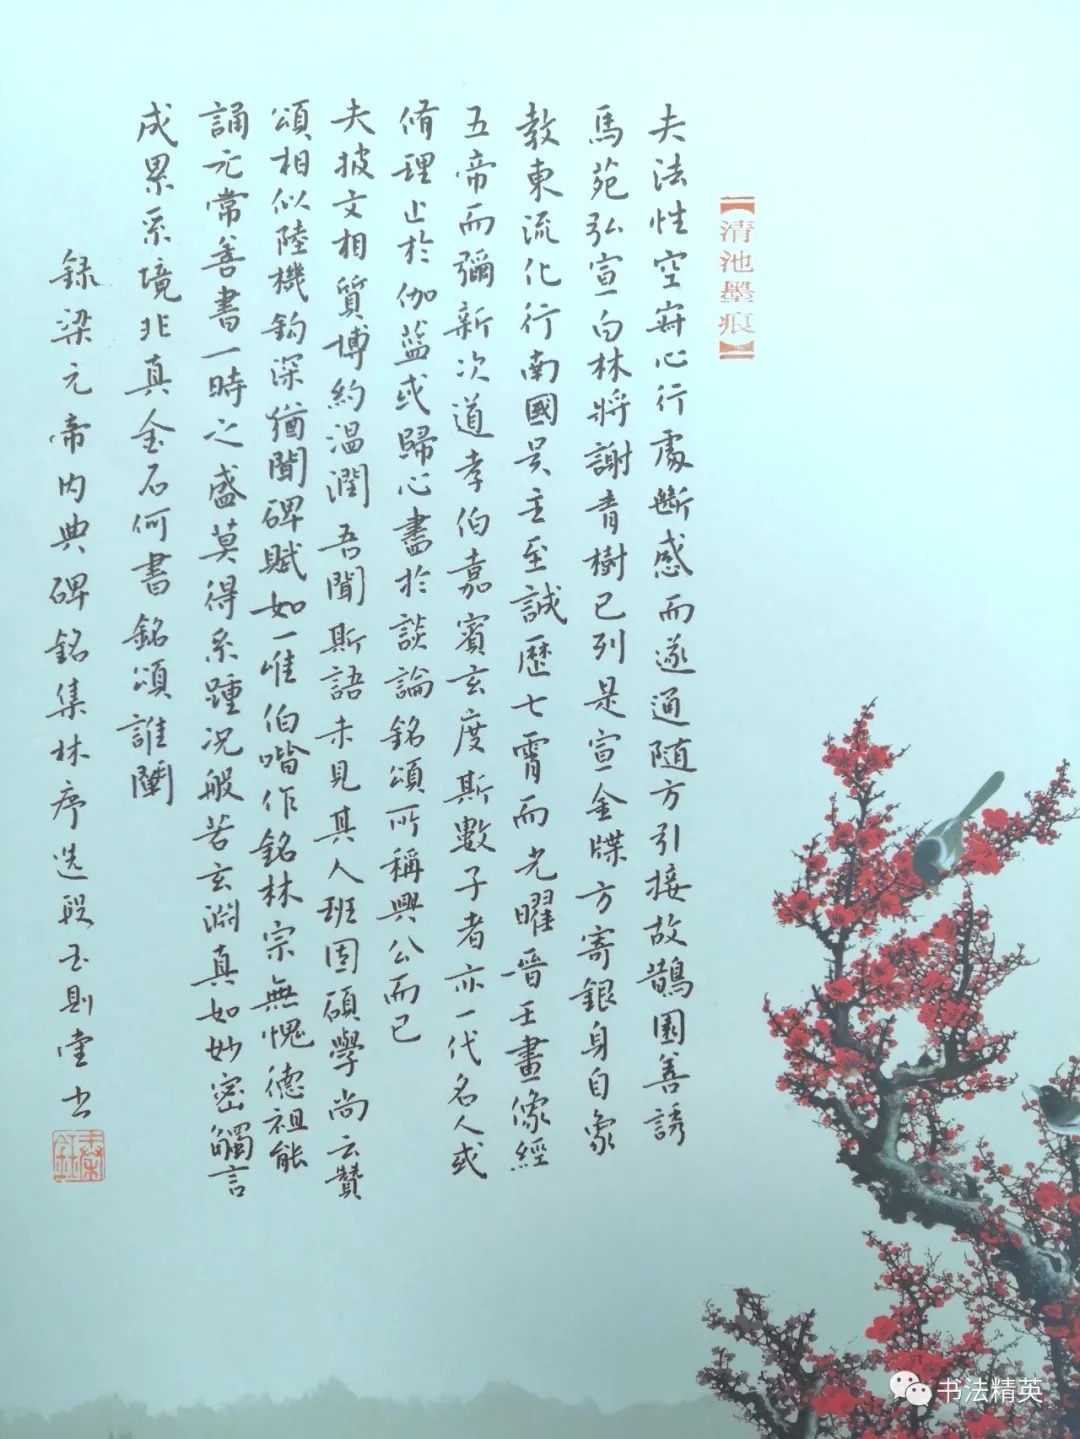 【清池墨痕】
夫法性空寂心行處斷感而遂通随方引接故鵲園善誘
馬苑弘宣白林將謝青樹已列是宣金牒方寄銀身自象
教東流化行南國吴主至誠歷七霄而光曜晉王畫像經
五帝而彌新次道孝伯嘉賓玄度斯數子者亦一代名人或
脩理止於伽藍或歸心盡於談論銘頌所稱興公而已
夫披文相質博約温潤吾聞斯語未見其人班固碩學尚云贊
頌相似陸機鈎深猶聞碑賦如一唯伯喈作銘林宗無愧德祖能
誦元常善書一時之盛莫得系踵况般若玄淵真如妙密觸言
成累系境非真金石何書銘頌誰闡
録梁元帝内典碑銘集林序选段玉則堂书
书法精英